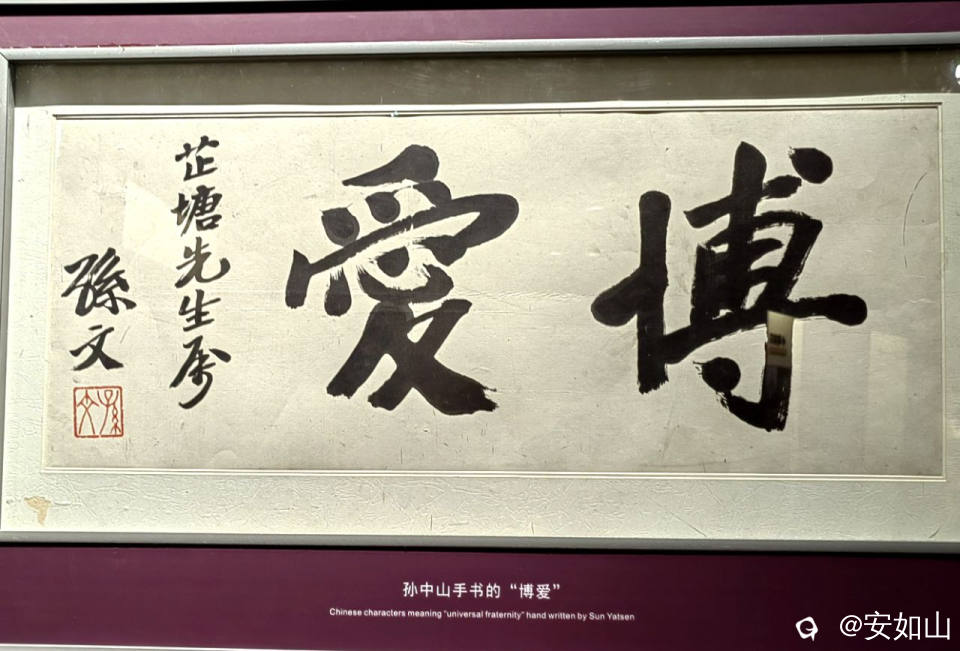 博愛
芷塘先生屬
孫文
孫文
孙中山手书的“博爱”
Chinese characters meaning "universal fraternity" hand written by Sun Yatsen
@安如山